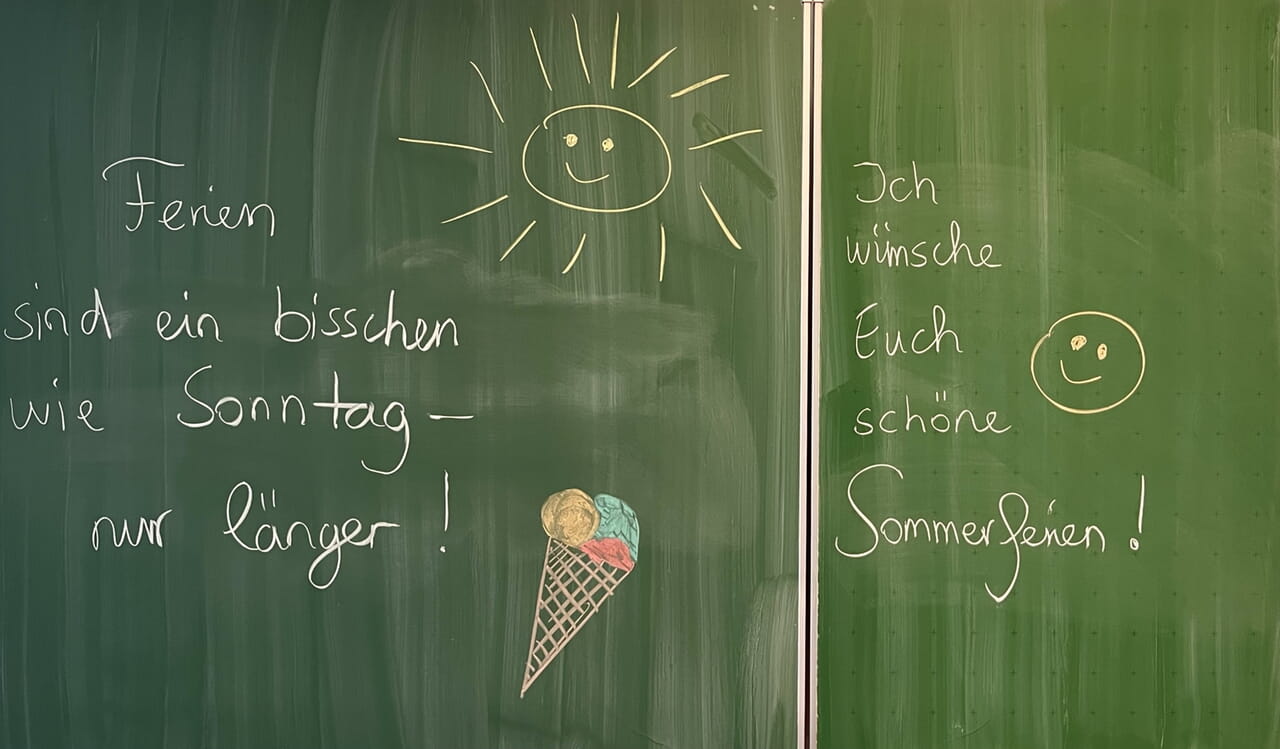 Ferien
sind ein bisschen
wie Sonntag –
nur länger!
Ich
wünsche
Euch
schöne
Sommerferien!